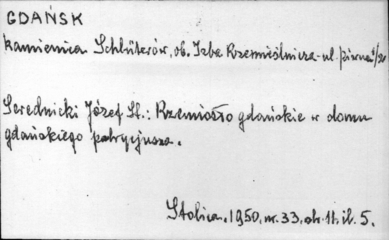 GDAŃSK
kamienica Schlüterów, ob. Izba Rzemieślnicza - ul. Piwna 1/2
Serednicki Józef St.: Rzemiosło gdańskie w domu
gdańskiego patrycjusza.
Stolica. 1950, nr. 33, str. 11, il. 5.